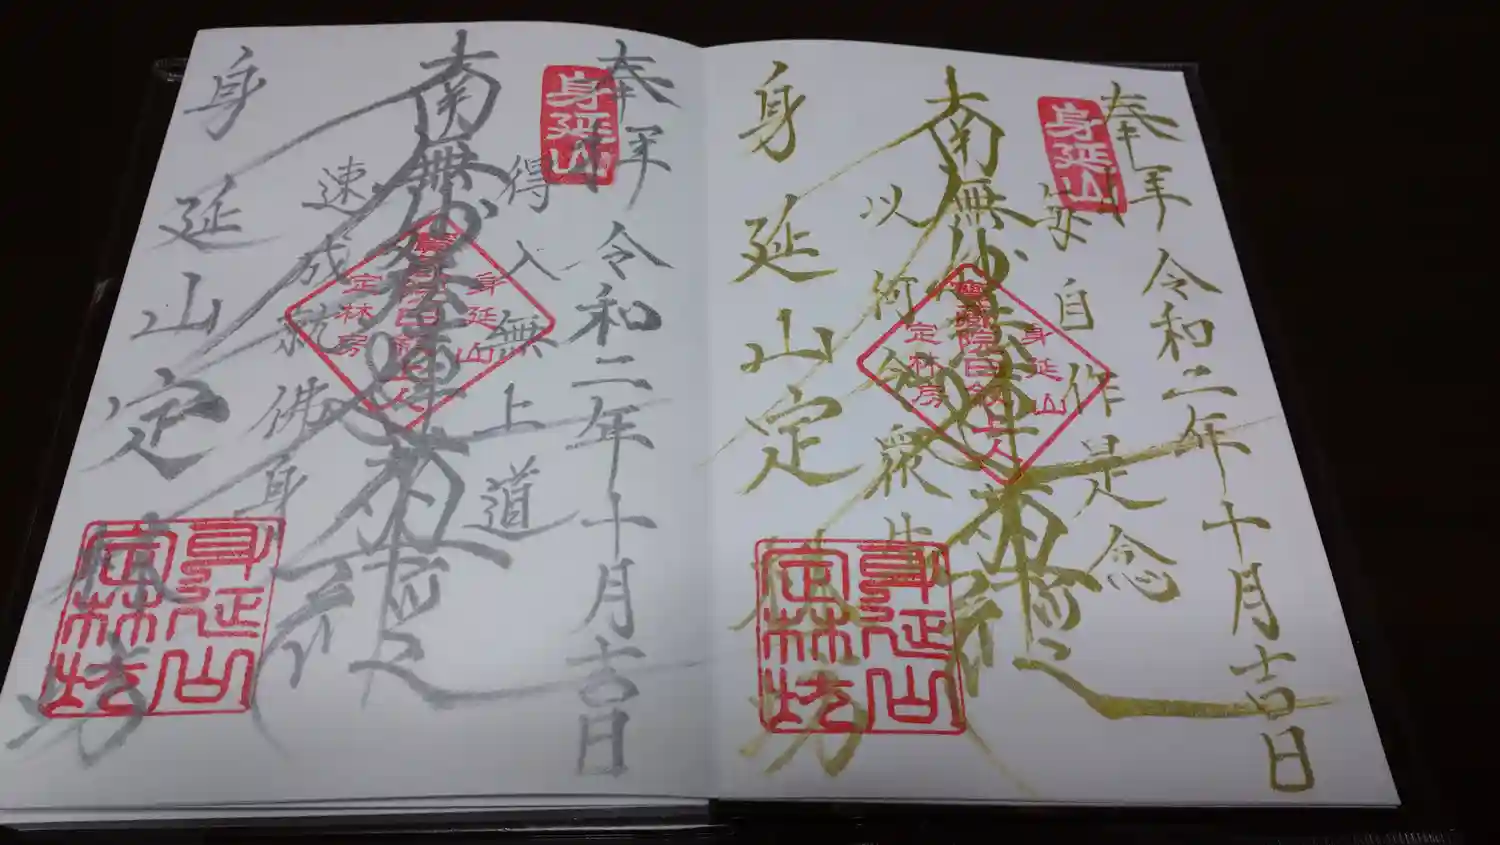 奉拝 令和二年十月吉日
身延山
毎自作是念
南無妙法蓮華経
日蓮
身延山
定林房
以何令衆生
身延山定林坊
身延山定林坊
奉拝 令和二年十月吉日
身延山
得入無上道
南無妙法蓮華経
日蓮
身延山
定林房
速成就佛身
身延山定林坊
身延山定林坊